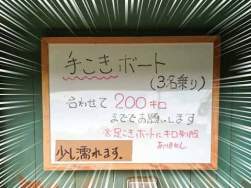 手こぎボート
(3名乗り)
合わせて200キロ
まででお願いします
※足こぎボートにキロ制限
ありません
少し濡れます。